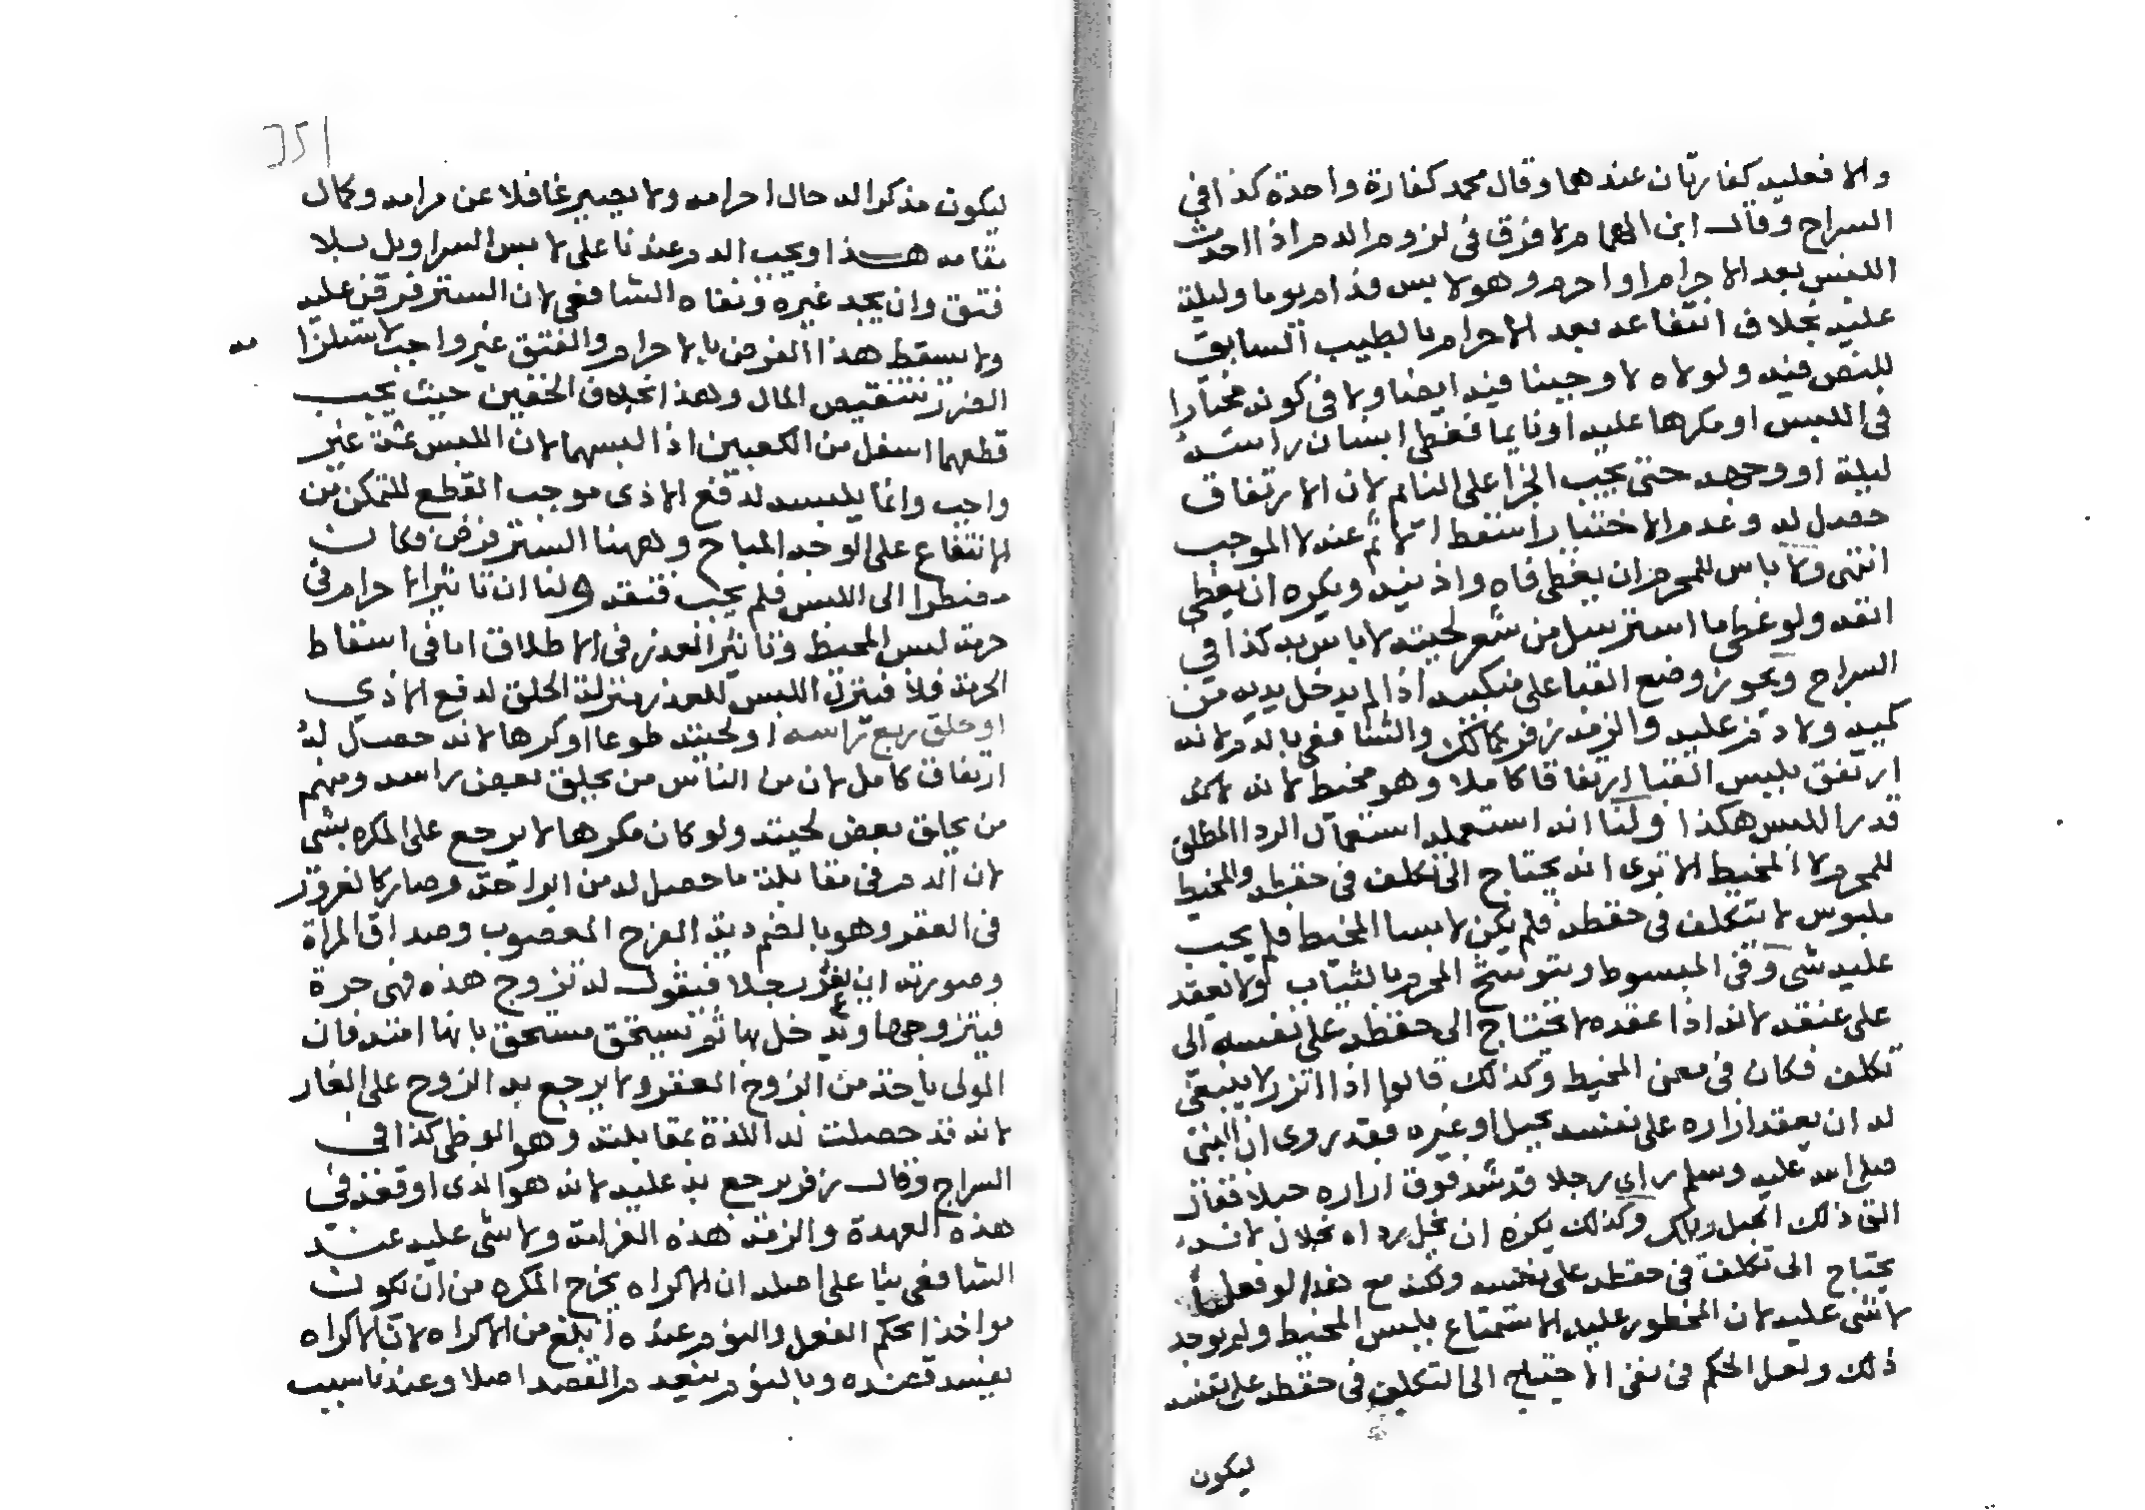 والا فعليه كفارتان عندهما وقال محمد كفارة واحدة كذا في
السراج وقال ابن الهمام ولا فرق في لزوم الدم اذا احدث
اللبس بعد الاحرام او احرم وهو لابس فدام يوما وليلة
عليه بخلاف انتفاعه بعد الاحرام بالطيب السابق
للنص فيه ولولاه لاوجبنا فيه ايضا ولا في كونه مختارا
في اللبس او مكرها عليه او نايما فغطى انسان راسه
ليلة او وجهه حتى يجب الجزا على النايم لان الارتفاق
حصل له وعدم الاختيار اسقط الاثم عنه لا الموجب
انتهى ولا باس للمحرم ان يغطي فاه واذنيه ويكره ان يغطي
انفه ولو غطى ما استرسل من شعر لحيته لا باس به كذا في
السراج ويجوز وضع القبا على منكبيه اذا لم يدخل يديه من
كميه ولا دم عليه والزمه زفر كمالك والشافعي بالدم لانه
ارتفق بلبس القبا ارتفاقا كاملا وهو مخيط لانه
قدر اللبس هكذا ولنا انه استعمله استعمال الردا المطلق
للمحرم لا المخيط الا ترى انه يحتاج الى تكلف في حفظه والمخيط
ملبوس لا يتكلف في حفظه فلم يكن لابسا المخيط فلم يجب
عليه شي وفي المبسوط ويتوشح المحرم بالثياب ولا يعقد
على عنقه لانه اذا عقده لا يحتاج الى حفظه على نفسه الى
تكلف فكان في معنى المخيط وكذلك قالوا اذا اتزر لا ينبغي
له ان يعقد ازاره على نفسه بحبل او غيره فقد روى ان النبي
صلى الله عليه وسلم راى رجلا قد شد فوق ازاره حبلا فقال
الق ذلك الحبل ويلك وكذلك يكره ان يخل رداه بخلال لانه
يحتاج الى تكلف في حفظه على نفسه ولكنه مع هذا لو فعل
لا شي عليه لان المحظور عليه الاستمتاع بلبس المخيط ولم يوجد
ذلك ولعل الحكم في نفي الاحتياج الى التكلف في حفظه على نفسه
ليكون
351
ليكون مذكرا له حال احرامه ولا يصير غافلا عن مرامه وكمال
مقامه هذا ويجب الدم عندنا على لابس السراويل بلا
فتق وان يجد غيره ونفاه الشافعي لان الستر فرض عليه
ولا يسقط هذا الفرض بالاحرام والفتق غير واجب لاستلزامه
الضرر بتنقيص المال وهذا بخلاف الخفين حيث يجب
قطعهما اسفل من الكعبين اذا لبسهما لان اللبس ثمة غير
واجب وانما يلبسه لدفع الاذى موجب القطع للتمكن من
الانتفاع على الوجه المباح وههنا الستر فرض فكان
مضطرا الى اللبس فلم يجب فتقه ولنا ان تاثير الاحرام في
حرمة لبس المخيط وتاثير العذر في الاطلاق اما في اسقاط
الحرمة فلا فنزل اللبس للعذر بمنزلة الحلق لدفع الاذى
او حلق ربع راسه او لحيته طوعا او كرها لانه حصل له
ارتفاق كامل لان من الناس من يحلق بعض راسه ومنهم
من يحلق بعض لحيته ولو كان مكرها لا يرجع على المكره بشي
لان الدم في مقابلة ما حصل له من الراحة وصار كالغرور
في العقر وهو بالضم دية الفرج المغصوب وصداق المراة
وصورته ان يغر رجلا فيقول له تزوج هذه فهي حرة
فيتزوجها ويدخل بها ثم تستحق مستحق بانها امته فان
المولى ياخذ من الزوج العقر ولا يرجع به الزوج على الغار
لانه قد حصلت له اللذة بمقابلته وهو الوطي كذا في
السراج وقال زفر يرجع به عليه لانه هو الذي اوقعه في
هذه العهدة والزمه هذه الغرامة ولا شي عليه عند
الشافعي بنا على اصله ان الاكراه يخرج المكره من ان يكون
مواخذا بحكم الفعل والنوم عنده ابلغ من الاكراه لان الاكراه
يفسد قصده وبالنوم ينعدم القصد اصلا وعندنا بسبب